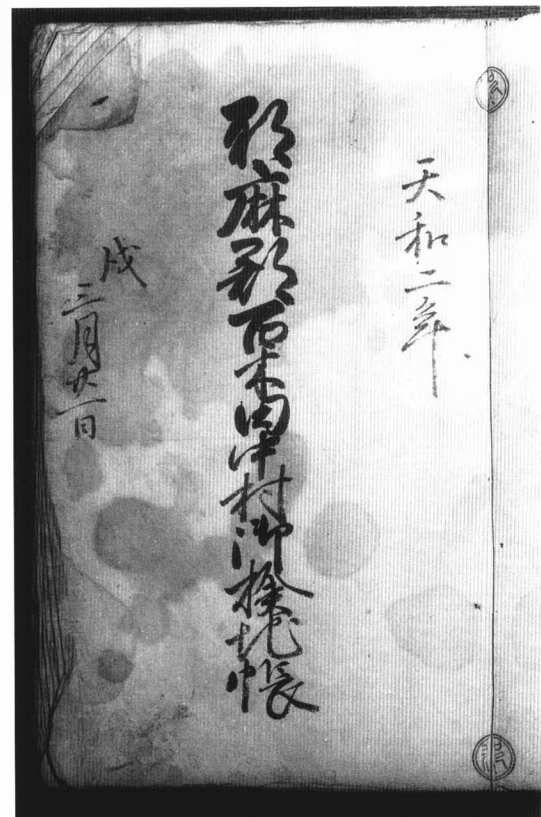 天和二年
耶麻郡百木田中村御検地帳
戌
三月廿一日